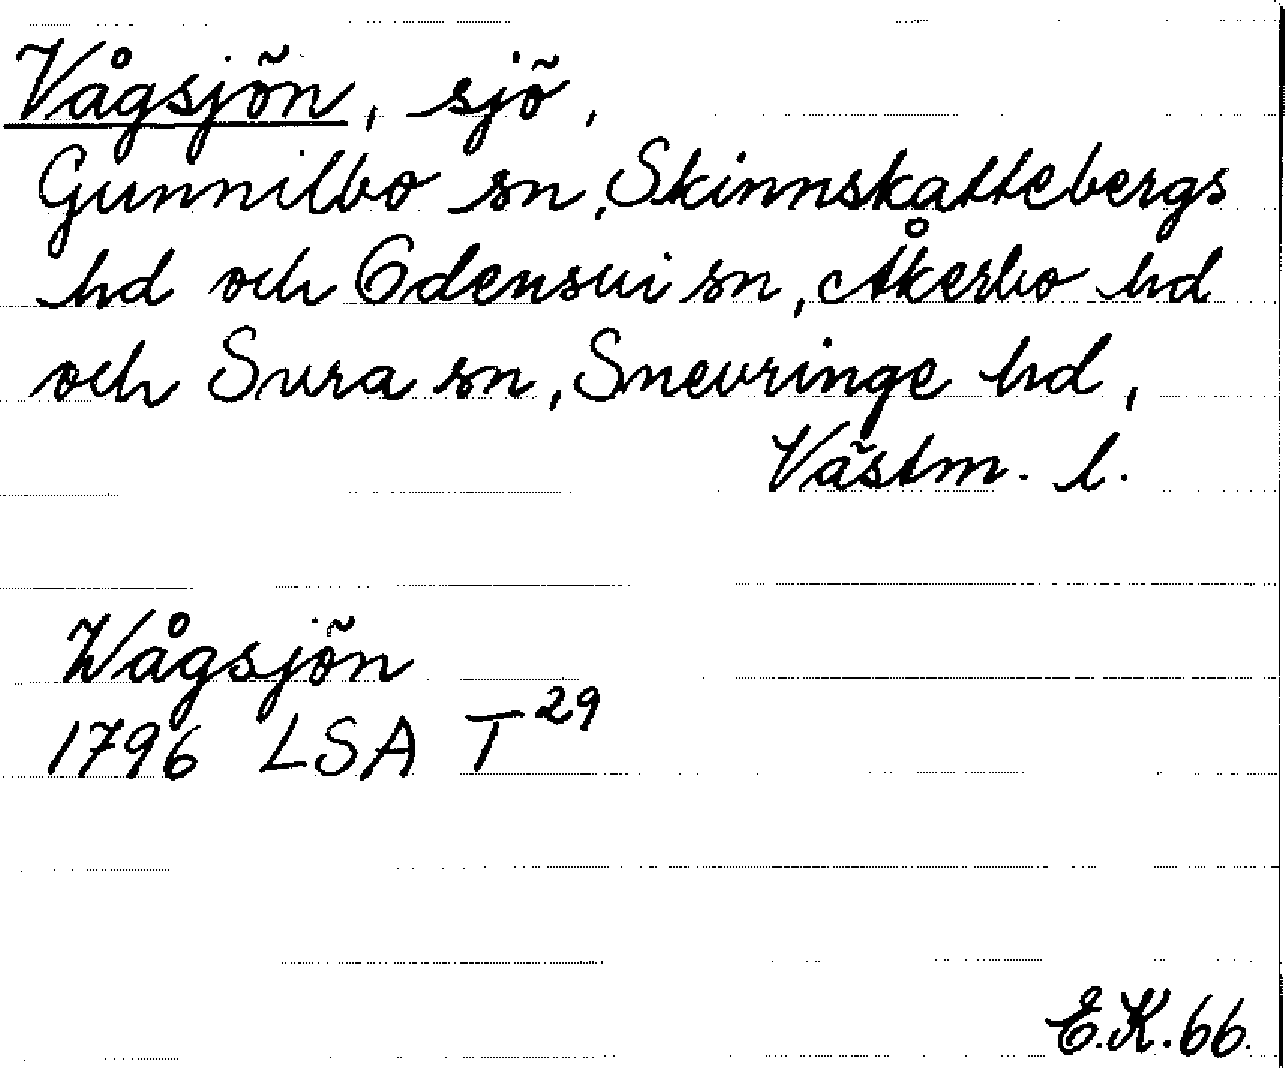 Vågsjön, sjö,
Gunnilbo sn, Skinnskattebergs
hd och Odensvi sn, Åkerbo hd
och Sura sn, Snevringe hd,
Västm. l.
Wågsjön
1796 LSA T²⁹
E.K. 66.